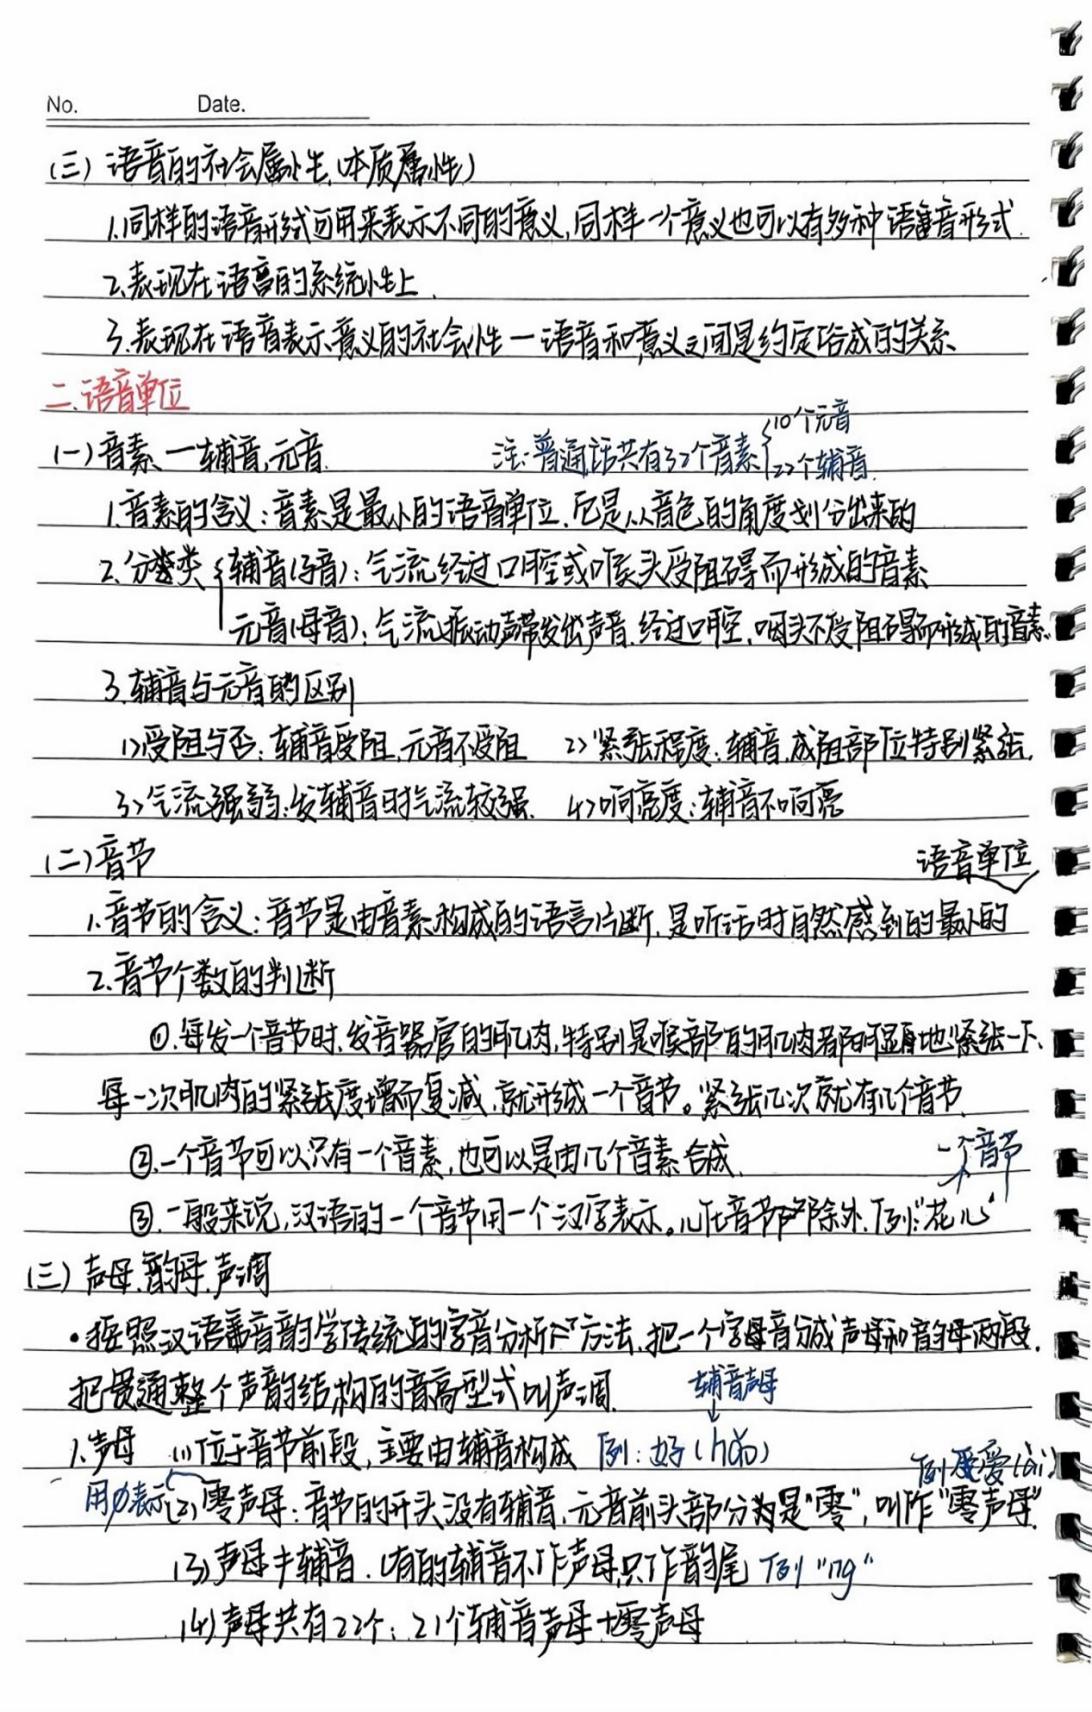 No. Date.
(三) 语音的社会属性(本质属性)
1.同样的语音形式可用来表示不同的意义,同样一个意义也可以有多种语音形式.
2.表现在语音的系统性上.
3.表现在语音表示意义的社会性—语音和意义之间是约定俗成的关系
二.语音单位
(一)音素—辅音,元音. 注:普通话共有32个音素{10个元音
22个辅音.
1.音素的含义:音素是最小的语音单位.它是从音色的角度划分出来的
2.分类{辅音(子音):气流经过口腔或喉头受阻碍而形成的音素
元音(母音):气流振动声带发出声音.经过口腔.咽头不受阻碍而形成的音素.
3.辅音与元音的区别
1>受阻与否:辅音受阻.元音不受阻 2>紧张程度:辅音.成阻部位特别紧张.
3>气流强弱:发辅音时气流较强. 4>响亮度:辅音不响亮
(二)音节 语音单位
1.音节的含义:音节是由音素构成的语言片断.是听话时自然感到的最小的
2.音节个数的判断
①.每发一个音节时.发音器官的肌肉,特别是喉部的肌肉都明显地紧张一下.
每一次肌肉的紧张度增而复减.就形成一个音节。紧张几次就有几个音节.
②.一个音节可以只有一个音素,也可以是由几个音素合成. 一个音节
③.一般来说,汉语的一个音节用一个汉字表示。儿化音节除外.例:"花儿"
(三)声母.韵母.声调
·按照汉语音韵学传统的字音分析方法.把一个字音分成声母和韵母两段.
把贯通整个声韵结构的音高型式叫声调. 辅音声母
1.声母 (1)位于音节前段,主要由辅音构成 例:好(hǎo) 例 爱(ài)
用∅表示(2)零声母:音节的开头没有辅音,元音前头部分为是"零",叫作"零声母".
(3)声母≠辅音.有的辅音不作声母,只作韵尾 例"ng"
(4)声母共有22个:21个辅音声母+零声母